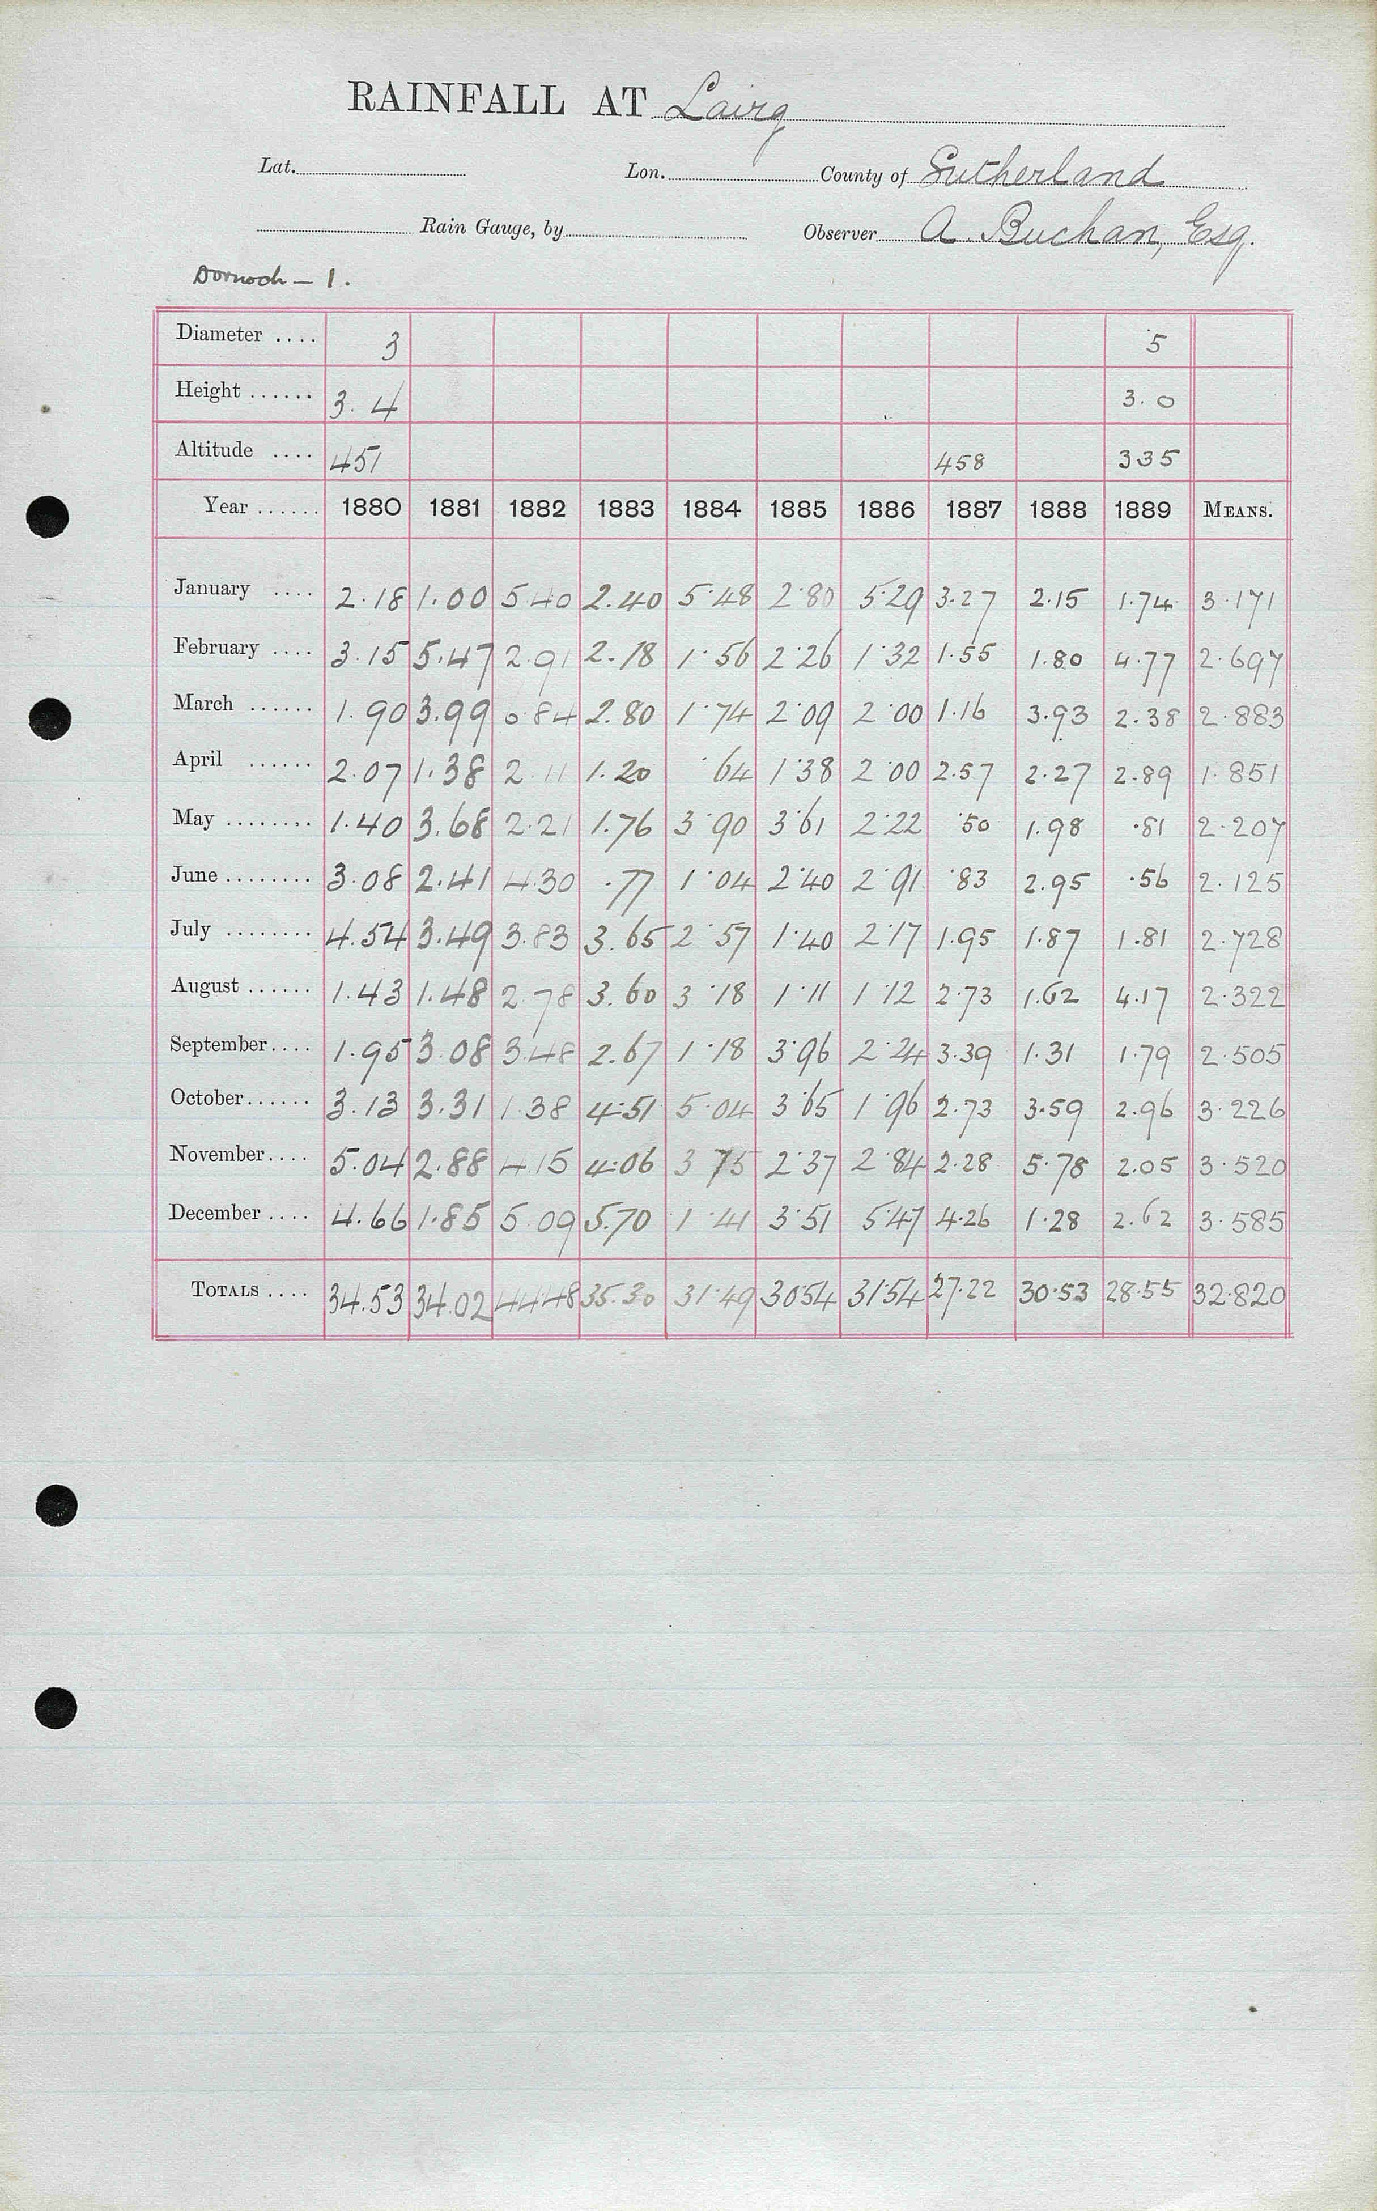 RAINFALL AT Lairg
Lat. Lon. County of Sutherland
Rain Gauge, by Observer A. Buchan, Esq.
Dornoch – 1.
Diameter .... 3 5
Height ...... 3.4 3.0
Altitude .... 451 458 335
Year ...... 1880 1881 1882 1883 1884 1885 1886 1887 1888 1889 MEANS.
January .... 2.18 1.00 5.40 2.40 5.48 2.80 5.29 3.27 2.15 1.74 3.171
February .... 3.15 5.47 2.91 2.18 1.56 2.26 1.32 1.55 1.80 4.77 2.697
March ...... 1.90 3.99 0.84 2.80 1.74 2.09 2.00 1.16 3.93 2.38 2.883
April ...... 2.07 1.38 2.11 1.20 .64 1.38 2.00 2.57 2.27 2.89 1.851
May ........ 1.40 3.68 2.21 1.76 3.90 3.61 2.22 .50 1.98 .81 2.207
June ........ 3.08 2.41 4.30 .77 1.04 2.40 2.91 .83 2.95 .56 2.125
July ........ 4.54 3.49 3.83 3.65 2.57 1.40 2.17 1.95 1.87 1.81 2.728
August ...... 1.43 1.48 2.78 3.60 3.18 1.11 1.12 2.73 1.62 4.17 2.322
September.... 1.95 3.08 3.48 2.67 1.18 3.96 2.24 3.39 1.31 1.79 2.505
October...... 3.13 3.31 1.38 4.51 5.04 3.65 1.96 2.73 3.59 2.96 3.226
November.... 5.04 2.88 4.15 4.06 3.75 2.37 2.84 2.28 5.78 2.05 3.520
December .... 4.66 1.85 5.09 5.70 1.41 3.51 5.47 4.26 1.28 2.62 3.585
TOTALS .... 34.53 34.02 44.48 35.30 31.49 30.54 31.54 27.22 30.53 28.55 32.820